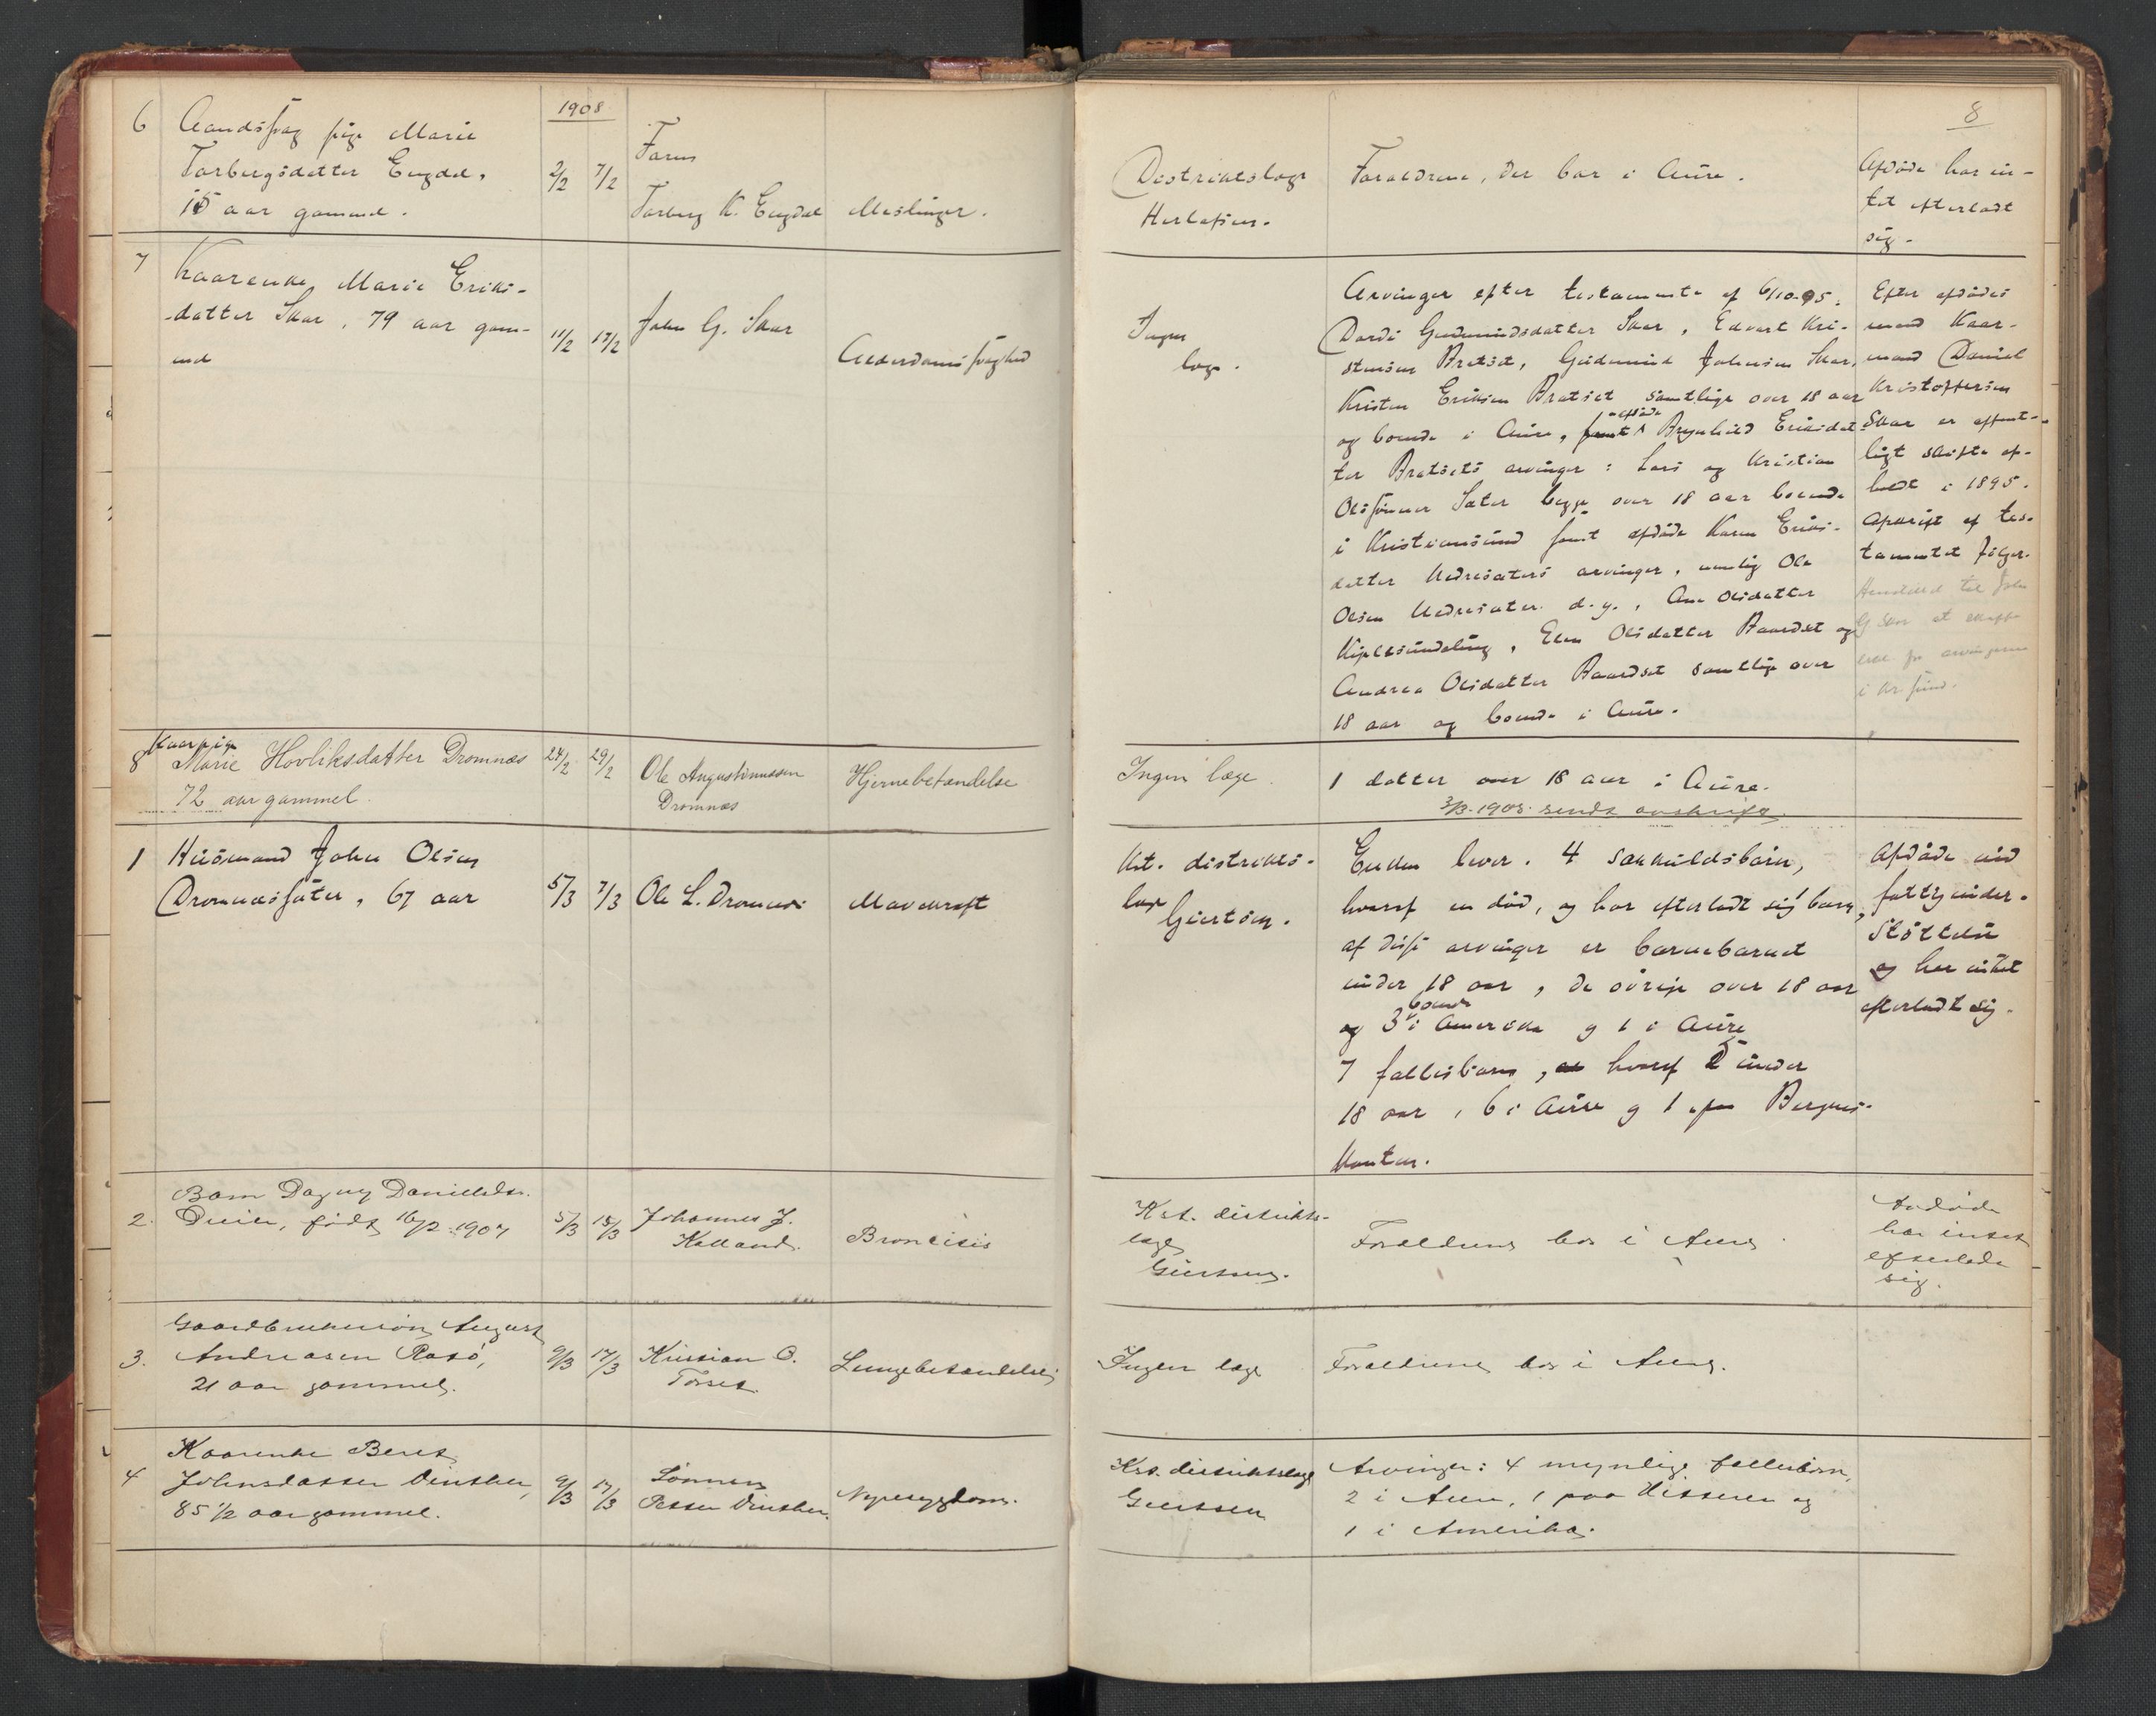 1908
8
6 Aandssvag pige Marie
Torbergsdatter Engdal,
15 aar gammel.
2/2 7/2
Faren
Torberg K. Engdal
Meslinger.
Distriktslæge
Herlofsen.
Forældrene, der bor i Aure.
Afdøde har in-
tet efterladt
sig.
7 Kaarenke Marie Eriks-
datter Skar, 79 aar gam-
mel
11/2 17/2
John G. Skar
Alderdomssvaghed
Ingen
læge.
Arvinger efter testamente af 6/10.95:
Dordi Gudmundsdatter Skar, Edvart Kri-
stensen Bratset, Gudmund Johnsen Skar,
Kristen Eriksen Bratset samtlige over 18 aar
og boende i Aure, samt afdøde Brynhild Eriksdat-
ter Bratsets arvinger: Lars og Kristian
Olssønner Sæter begge over 18 aar boende
i Kristiansund samt afdøde Karen Eriks-
datter Nedresæters arvinger, nemlig Ole
Olsen Nedresæter d.y., Ane Olsdatter
Kjelksundeling, Elen Olsdatter Baardset og
Andrea Olsdatter Baardset samtlige over
18 aar og boende i Aure.
Efter afdødes
mand Kaar-
mand Daniel
Kristoffersen
Skar er offent-
ligt skifte af-
holdt i 1895.
Afskrift af tes-
tamentet følger.
Henstillet til John
G Skar at skaffe
for arvingerne
i Kr.sund.
8 Kaarpige
Marie Hovliksdatter Dromnæs
72 aar gammel.
24/2 29/2
Ole Augustinussen
Dromnæs
Hjernebetændelse
Ingen læge.
1 datter over 18 aar i Aure.
3/3-1908 sendt avskrift.
1 Husmand John Olsen
Dromnessæter, 67 aar
5/3 7/3
Ole L. Dromnes
Mavekræft
Kst. distrikts-
læge
Giertsen.
Enken lever. 4 særkuldsbørn,
hvoraf en død, og har efterladt sig 1 barn,
af disse arvinger er barnebarnet
under 18 aar, de øvrige over 18 aar
og 3 boende i Amerika og 1 i Aure
7 fællesbørn, hvoraf 5 under
18 aar, 6 i Aure og 1 paa Bergens-
kanten.
Afdøde nød
fattigunder-
støttelse
og har intet
efterladt sig.
2. Barn Dagny Danielsdtr.
født 16/2 1907
5/3 15/3
Johannes J.
Kelland.
Broncitis
Kst. distrikts-
læge
Giertsen.
Forældrene bor i Aure.
Avdøde
har intet
efterladt
sig.
3. Gaardbrukersøn August
Andreasen Rotø,
21 aar gammel.
9/3 17/3
Kristian O.
Torset.
Lungebetændelse
Ingen læge
Forældrene bor i Aure.
4 Kaarenke Beret
Johnsdatter Vinsther,
85 1/2 aar gammel.
9/3 17/3
Sønnen
Petter Vinsther.
Nyresygdom.
Kst. distriktslæge
Giertsen
Arvinger: 4 myndige fellesbørn,
2 i Aure, 1 paa Hitteren og
1 i Amerika.